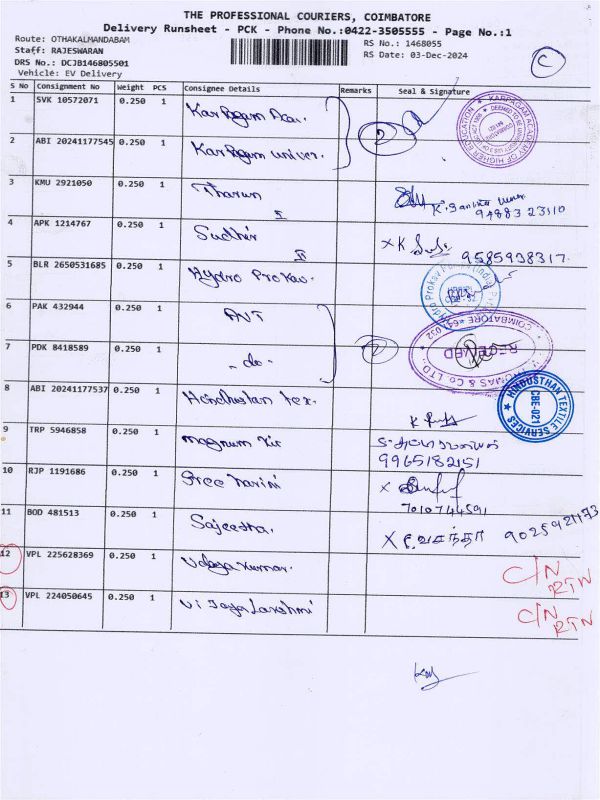 THE PROFESSIONAL COURIERS, COIMBATORE
Delivery Runsheet - PCK - Phone No.:0422-3505555 - Page No.:1
Route: OTHAKALMANDABAM
RS No.: 1468055
Staff: RAJESWARAN
RS Date: 03-Dec-2024
DRS No.: DCJB146805501
Vehicle: EV Delivery
C
S No Consignment No Weight PCS Consignee Details Remarks Seal & Signature
1 SVK 10572071 0.250 1 Karpagam Aca. 2
KARPAGAM ACADEMY OF HIGHER EDUCATION
2 ABI 20241177545 0.250 1 Karpagam univer.
3 KMU 2921050 0.250 1 Tharun
9488323110
4 APK 1214767 0.250 1 Sudhir X K 9585938317
5 BLR 2650531685 0.250 1 Hydro Prokav.
6 PAK 432944 0.250 1 ANT 2
COIMBATORE
7 PDK 8418589 0.250 1 - do - RECEIVED
THOMAS & Co LTD.
8 ABI 20241177537 0.250 1 Hindhustan Tex.
HINDUSTHAN TEXTILE SERVICES CBE-021
9 TRP 5946858 0.250 1 magnum
9965182151
10 RJP 1191686 0.250 1 Sree harini X
7010744591
11 BOD 481513 0.250 1 Sajeetha. X P. வசந்தா 9025921173
12 VPL 225628369 0.250 1 Udaya kumar. C/N RTN
13 VPL 224050645 0.250 1 Vijaya Lakshmi C/N RTN